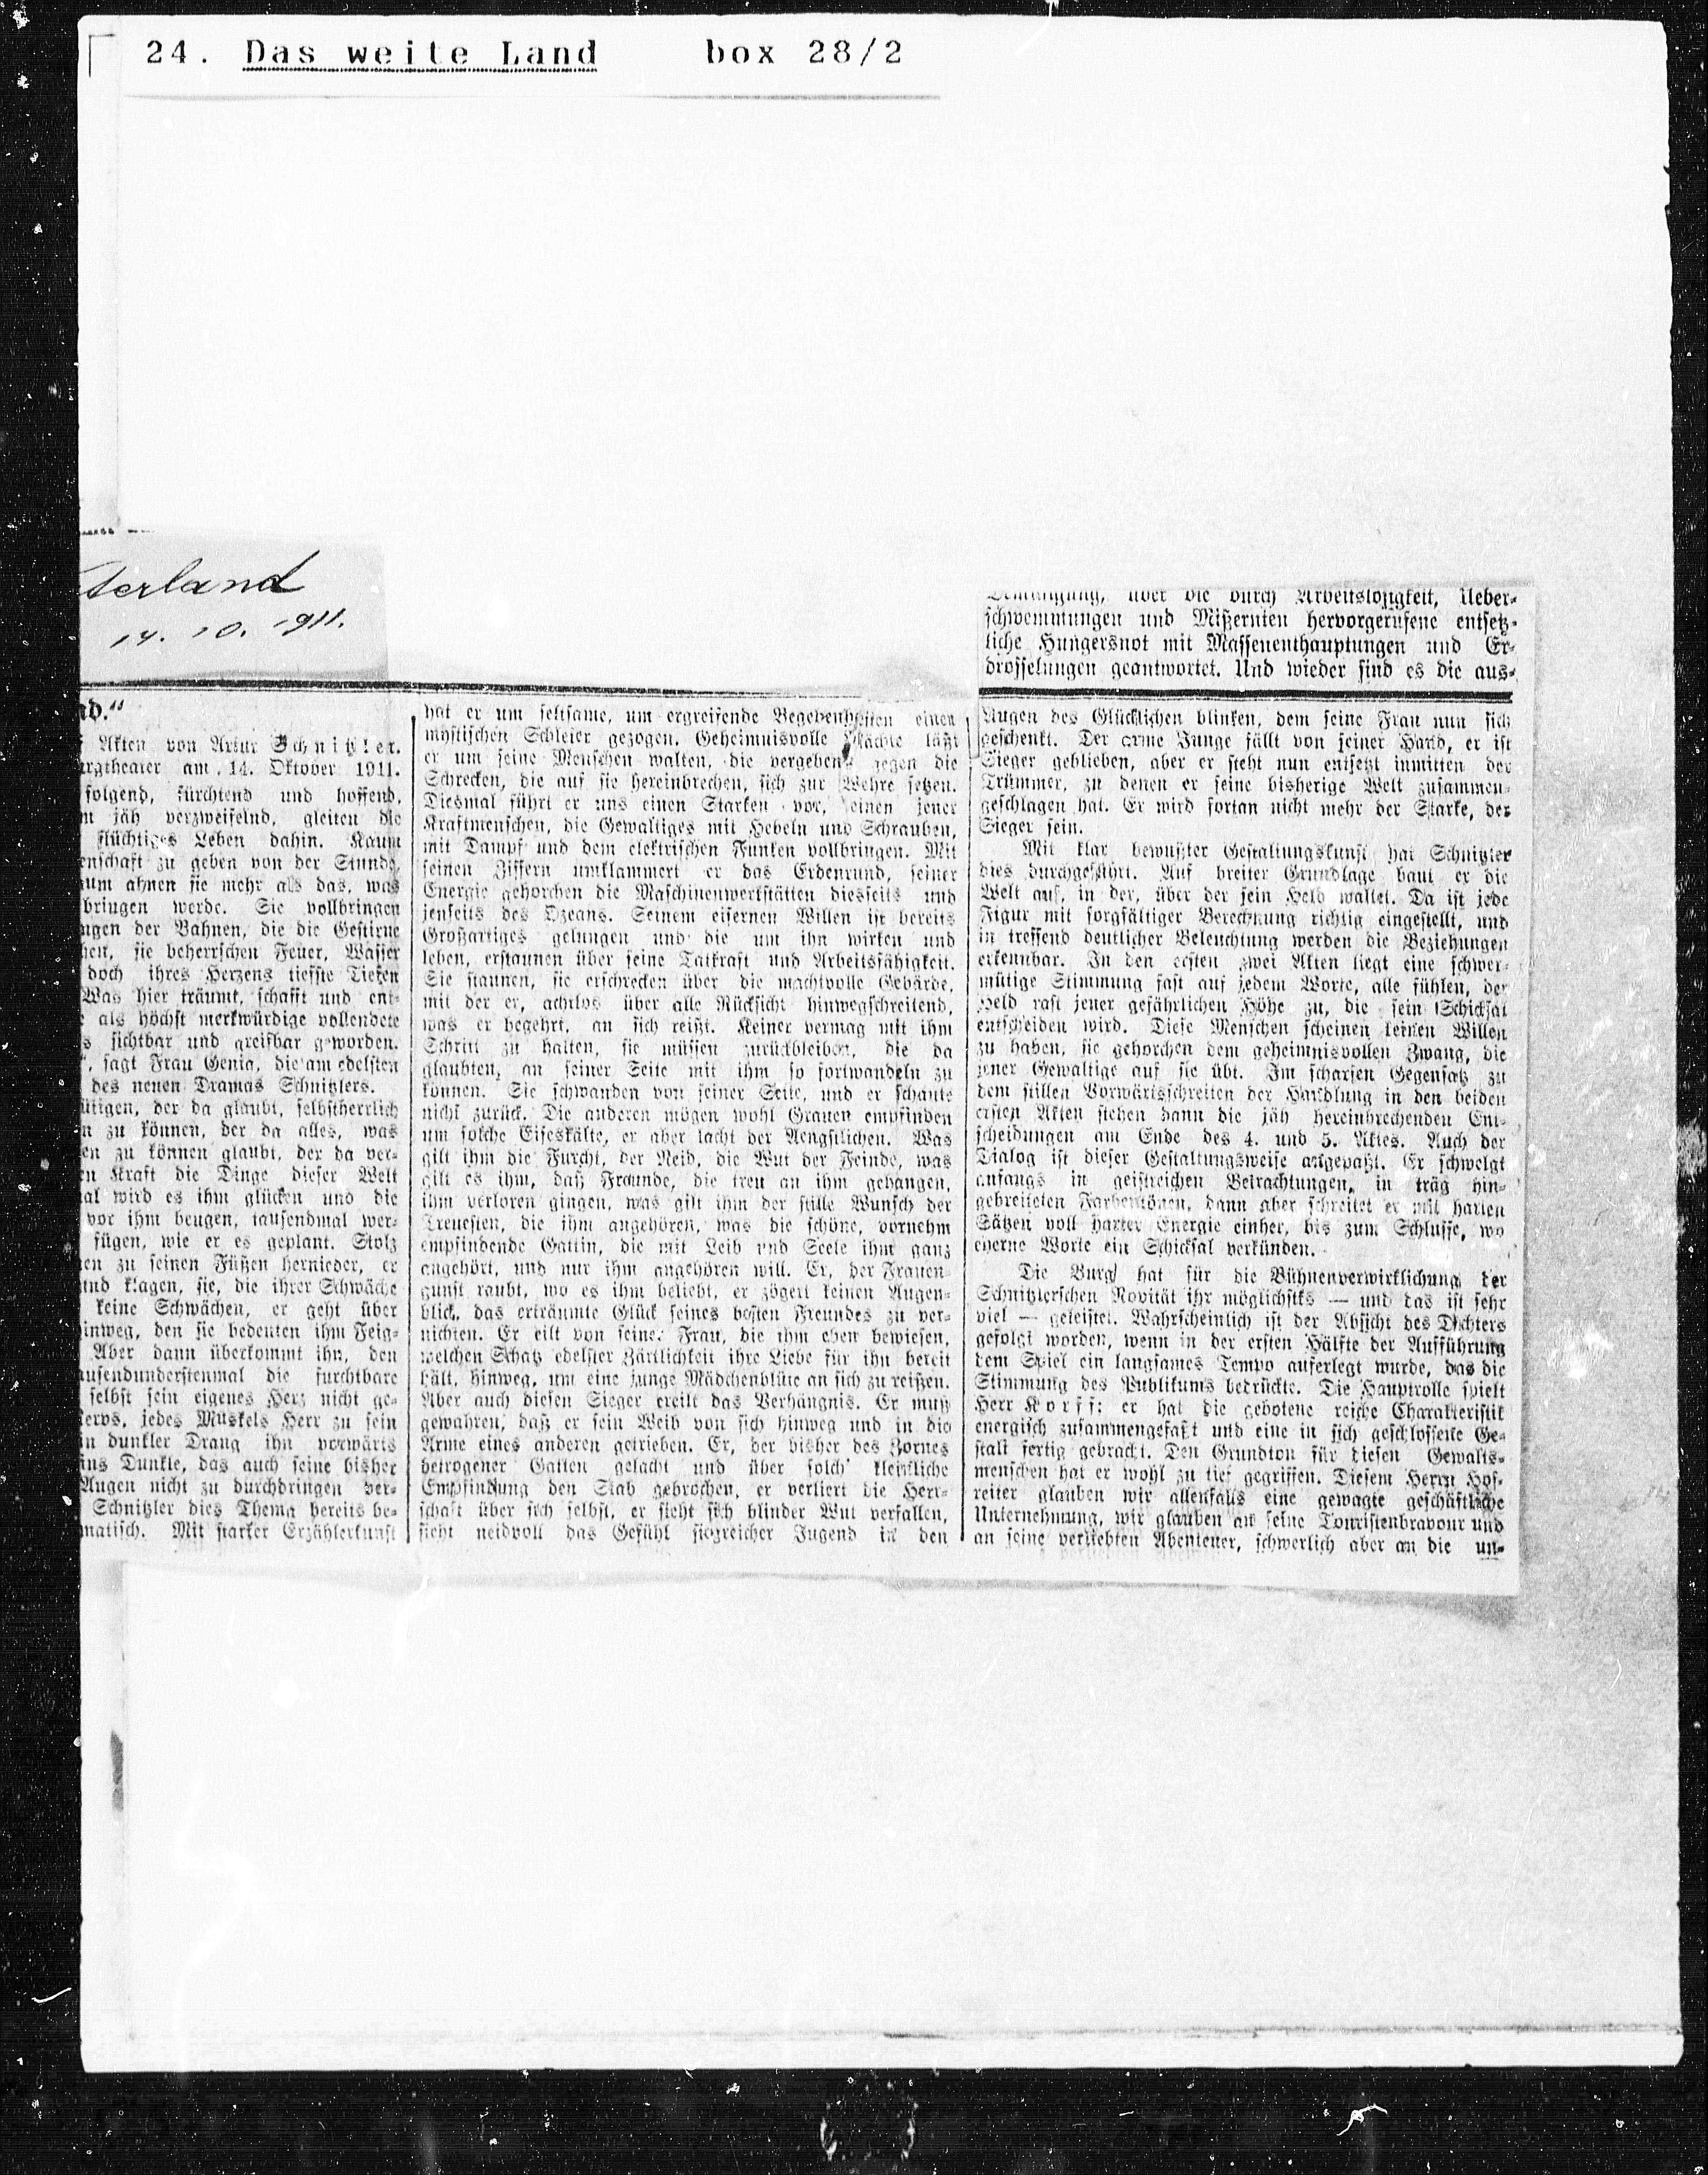 24. Das weite Land box 28/2
terland
14. 10. 1911.
nd."
Akten von Artur Schnitzler.
urgtheater am 14. Oktober 1911.
folgend, fürchtend und hoffend,
m jäh verzweifelnd, gleiten die
flüchtiges Leben dahin. Kaum
enschaft zu geben von der Stunde,
aum ahnen sie mehr als das, was
bringen werde. Sie vollbringen
ngen der Bahnen, die die Gestirne
hen, sie beherrschen Feuer, Wasser
doch ihres Herzens tiefste Tiefen
Was hier träumt, schafft und ent-
als höchst merkwürdige vollendete
s sichtbar und greifbar geworden.
", sagt Frau Genia, die am edelsten
des neuen Dramas Schnitzlers.
ütigen, der da glaubt, selbstherrlich
n zu können, der da alles, was
en zu können glaubt, der da ver-
en Kraft die Dinge dieser Welt
al wird es ihm glücken und die
vor ihm beugen, tausendmal wer-
fügen, wie er es geplant. Stolz
en zu seinen Füßen hernieder, er
und klagen, sie, die ihrer Schwäche
keine Schwächen, er geht über
inweg, den sie bedeuten ihm Feig-
Aber dann überkommt ihn, den
ausendundersten mal die furchtbare
selbst sein eigenes Herz nicht ge-
ervs, jedes Muskels Herr zu sein
in dunkler Drang ihn vorwärts
ins Dunkle, das auch seine bisher
Augen nicht zu durchdringen ver-
Schnitzler dies Thema bereits be-
matisch. Mit starker Erzählerkunst
hat er um seltsame, um ergreifende Begebenheiten einen
mystischen Schleier gezogen. Geheimnisvolle Mächte läßt
er um seine Menschen walten, die vergebens gegen die
Schrecken, die auf sie hereinbrechen, sich zur Wehre setzen.
Diesmal führt er uns einen Starken vor, einen jener
Kraftmenschen, die Gewaltiges mit Hebeln und Schrauben,
mit Dampf und dem elektrischen Funken vollbringen. Mit
seinen Ziffern umklammert er das Erdenrund, seiner
Energie gehorchen die Maschinenwerkstätten diesseits und
jenseits des Ozeans. Seinem eisernen Willen ist bereits
Großartiges gelungen und die um ihn wirken und
leben, erstaunen über seine Tatkraft und Arbeitsfähigkeit.
Sie staunen, sie erschrecken über die machtvolle Gebärde,
mit der er, achtlos über alle Rücksicht hinwegschreitend,
was er begehrt, an sich reißt. Keiner vermag mit ihm
Schritt zu halten, sie müssen zurückbleiben, die da
glaubten, an seiner Seite mit ihm so fortwandeln zu
können. Sie schwanden von seiner Seite, und er schaute
nicht zurück. Die anderen mögen wohl Grauen empfinden
um solche Eiseskälte, er aber lacht der Aengstlichen. Was
gilt ihm die Furcht, der Neid, die Wut der Feinde, was
gilt es ihm, daß Freunde, die treu an ihm gehangen,
ihm verloren gingen, was gilt ihm der stille Wunsch der
Treuesten, die ihm angehören, was die schöne, vornehm
empfindende Gattin, die mit Leib und Seele ihm ganz
angehört, und nur ihm angehören will. Er, der Frauen-
gunst raubt, wo es ihm beliebt, er zögert keinen Augen-
blick, das erträumte Glück seines besten Freundes zu ver-
nichten. Er eilt von seiner Frau, die ihm eben bewiesen,
welchen Schatz edelster Zärtlichkeit ihre Liebe für ihn bereit
hält, hinweg, um eine junge Mädchenblüte an sich zu reißen.
Aber auch diesen Sieger ereilt das Verhängnis. Er muß
gewahren, daß er sein Weib von sich hinweg und in die
Arme eines anderen getrieben. Er, der bisher des Zornes
betrogener Gatten gelacht und über solch' kleinliche
Empfindung den Stab gebrochen, er verliert die Herr-
schaft über sich selbst, er sieht sich blinder Wut verfallen,
sieht neidvoll das Gefühl siegreicher Jugend in den
über die durch Arbeitslosigkeit, Ueber-
schwemmungen und Mißernten hervorgerufene entsetz-
liche Hungersnot mit Massenenthauptungen und Er-
drosselungen geantwortet. Und wieder sind es die aus-
Augen des Glücklichen blinken, dem seine Frau nun sich
geschenkt. Der arme Junge fällt von seiner Hand, er ist
Sieger geblieben, aber er steht nun entsetzt inmitten der
Trümmer, zu denen er seine bisherige Welt zusammen-
geschlagen hat. Er wird fortan nicht mehr der Starke, der
Sieger sein.
Mit klar bewußter Gestaltungskunst hat Schnitzler
dies durchgeführt. Auf breiter Grundlage baut er die
Welt auf, in der, über der sein Held waltet. Da ist jede
Figur mit sorgfältiger Berechnung richtig eingestellt, und
in treffend deutlicher Beleuchtung werden die Beziehungen
erkennbar. In den ersten zwei Akten liegt eine schwer-
mütige Stimmung fast auf jedem Worte, alle fühlen, der
Held rast jener gefährlichen Höhe zu, die sein Schicksal
entscheiden wird. Diese Menschen scheinen keinen Willen
zu haben, sie gehorchen dem geheimnisvollen Zwang, die
jener Gewaltige auf sie übt. Im scharfen Gegensatz zu
dem stillen Vorwärtsschreiten der Handlung in den beiden
ersten Akten stehen dann die jäh hereinbrechenden Ent-
scheidungen am Ende des 4. und 5. Aktes. Auch der
Dialog ist dieser Gestaltungsweise angepaßt. Er schwelgt
anfangs in geistreichen Betrachtungen, in träg hin-
gebreiteten Farbentönen, dann aber schreitet er mit harten
Sätzen voll harter Energie einher, bis zum Schlusse, wo
eherne Worte ein Schicksal verkünden.
Die Burg hat für die Bühnenverwirklichung der
Schnitzlerschen Novität ihr möglichstes — und das ist sehr
viel — geleistet. Wahrscheinlich ist der Absicht des Dichters
gefolgt worden, wenn in der ersten Hälfte der Aufführung
dem Spiel ein langsames Tempo auferlegt wurde, das die
Stimmung des Publikums bedrückte. Die Hauptrolle spielt
Herr Korff; er hat die gebotene reiche Charakteristik
energisch zusammengefaßt und eine in sich geschlossene Ge-
stalt fertig gebracht. Den Grundton für diesen Gewalts-
menschen hat er wohl zu tief gegriffen. Diesem Herrn Hof-
reiter glauben wir allenfalls eine gewagte geschäftliche
Unternehmung, wir glauben an seine Touristenbravour und
an seine verliebten Abenteuer, schwerlich aber an die un-